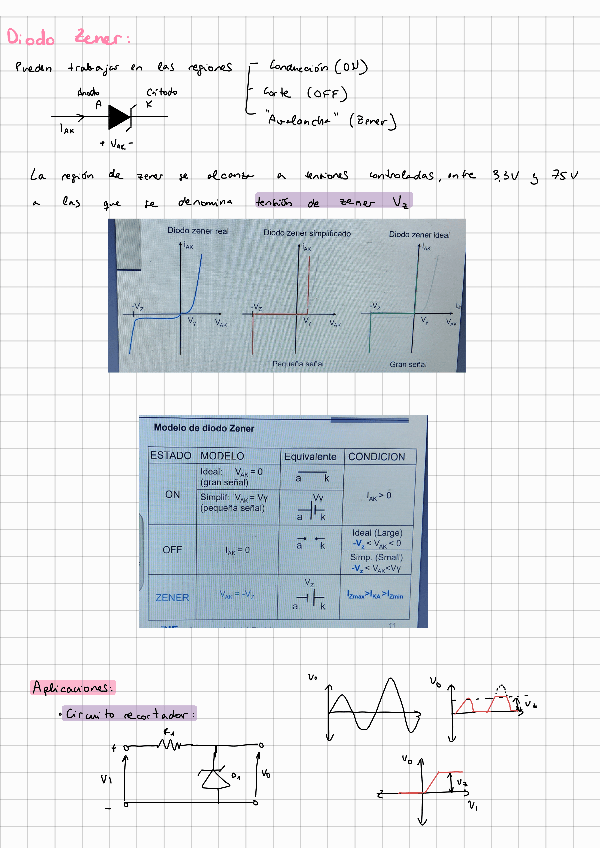 Diodo Zener:
Pueden trabajar en las regiones
Conducción (ON)
Corte (OFF)
"Avalancha" (Zener)
Ánodo Cátodo
A K
I_AK
+ V_AK -
La región de zener se alcanza a tensiones controladas, entre 3,3V y 75V
a las que se denomina tensión de zener V_z
Diodo zener real Diodo zener simplificado Diodo zener ideal
I_AK I_AK I_AK
-V_Z -V_Z -V_Z
Vγ V_AK Vγ V_AK Vγ V_AK
Pequeña señal Gran señal
Modelo de diodo Zener
ESTADO MODELO Equivalente CONDICION
ON
Ideal: V_AK = 0
(gran señal)
a k
Simplif: V_AK = Vγ
(pequeña señal)
Vγ
a k
I_AK > 0
OFF
I_AK = 0
a k
Ideal (Large)
-V_z < V_AK < 0
Simp. (Small)
-V_z < V_AK < Vγ
ZENER
V_AK = -V_z
V_z
a k
I_Zmax > I_KA > I_Zmin
Aplicaciones:
• Circuito recortador:
R_1
+
V_i
-
D_1
V_o
V_o
V_o
V_o
V_z
V_i